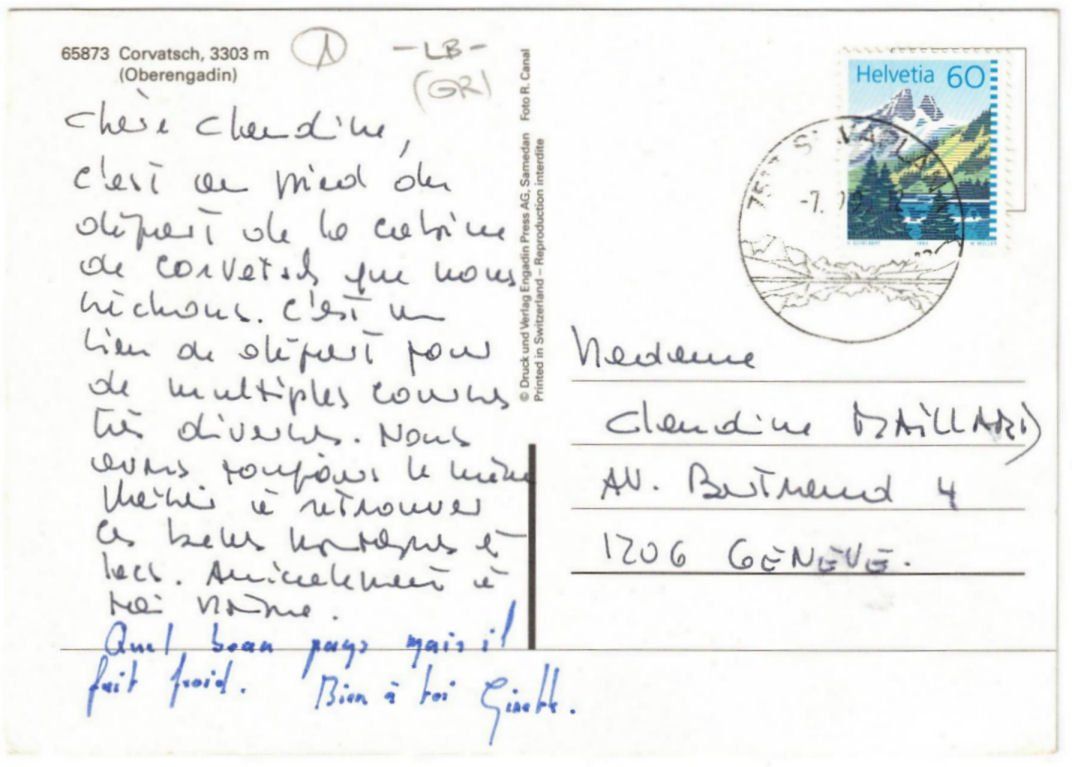 65873 Corvatsch, 3303 m
(Oberengadin)
1
-LB-
(GR)
Chère Claudine,
c'est au pied du
départ de la cabine
de Corvatsch que nous
nichons. C'est un
lieu de départ pour
de multiples courses
très diverses. Nous
avons toujours le même
plaisir à retrouver
ces belles montagnes et
lacs. Amicalement à
toi
Quel beau pays mais il
fait froid. Bien à toi Ginette.
© Druck und Verlag Engadin Press AG, Samedan Foto R. Canal
Printed in Switzerland – Reproduction interdite
Helvetia 60
SILVAPLANA
-7.
Madame
Claudine MAILLARD
AV. Bertrand 4
1206 GENEVE.